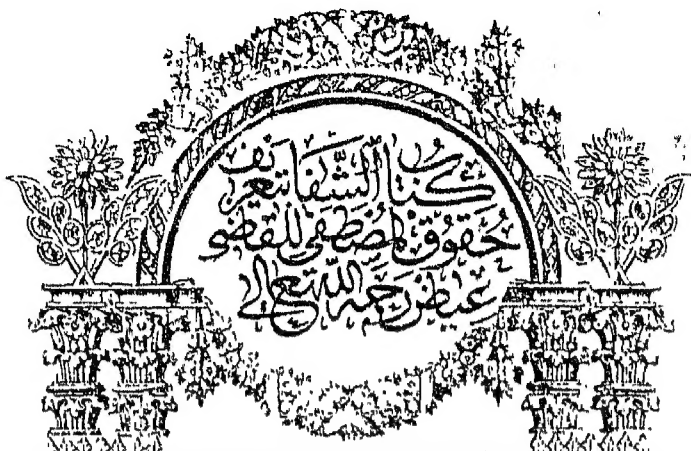 كتابُ الشِّفا بتعريف
حُقوق المُصْطَفى للقاضى
عياض رَحِمَه اللّه تعالى